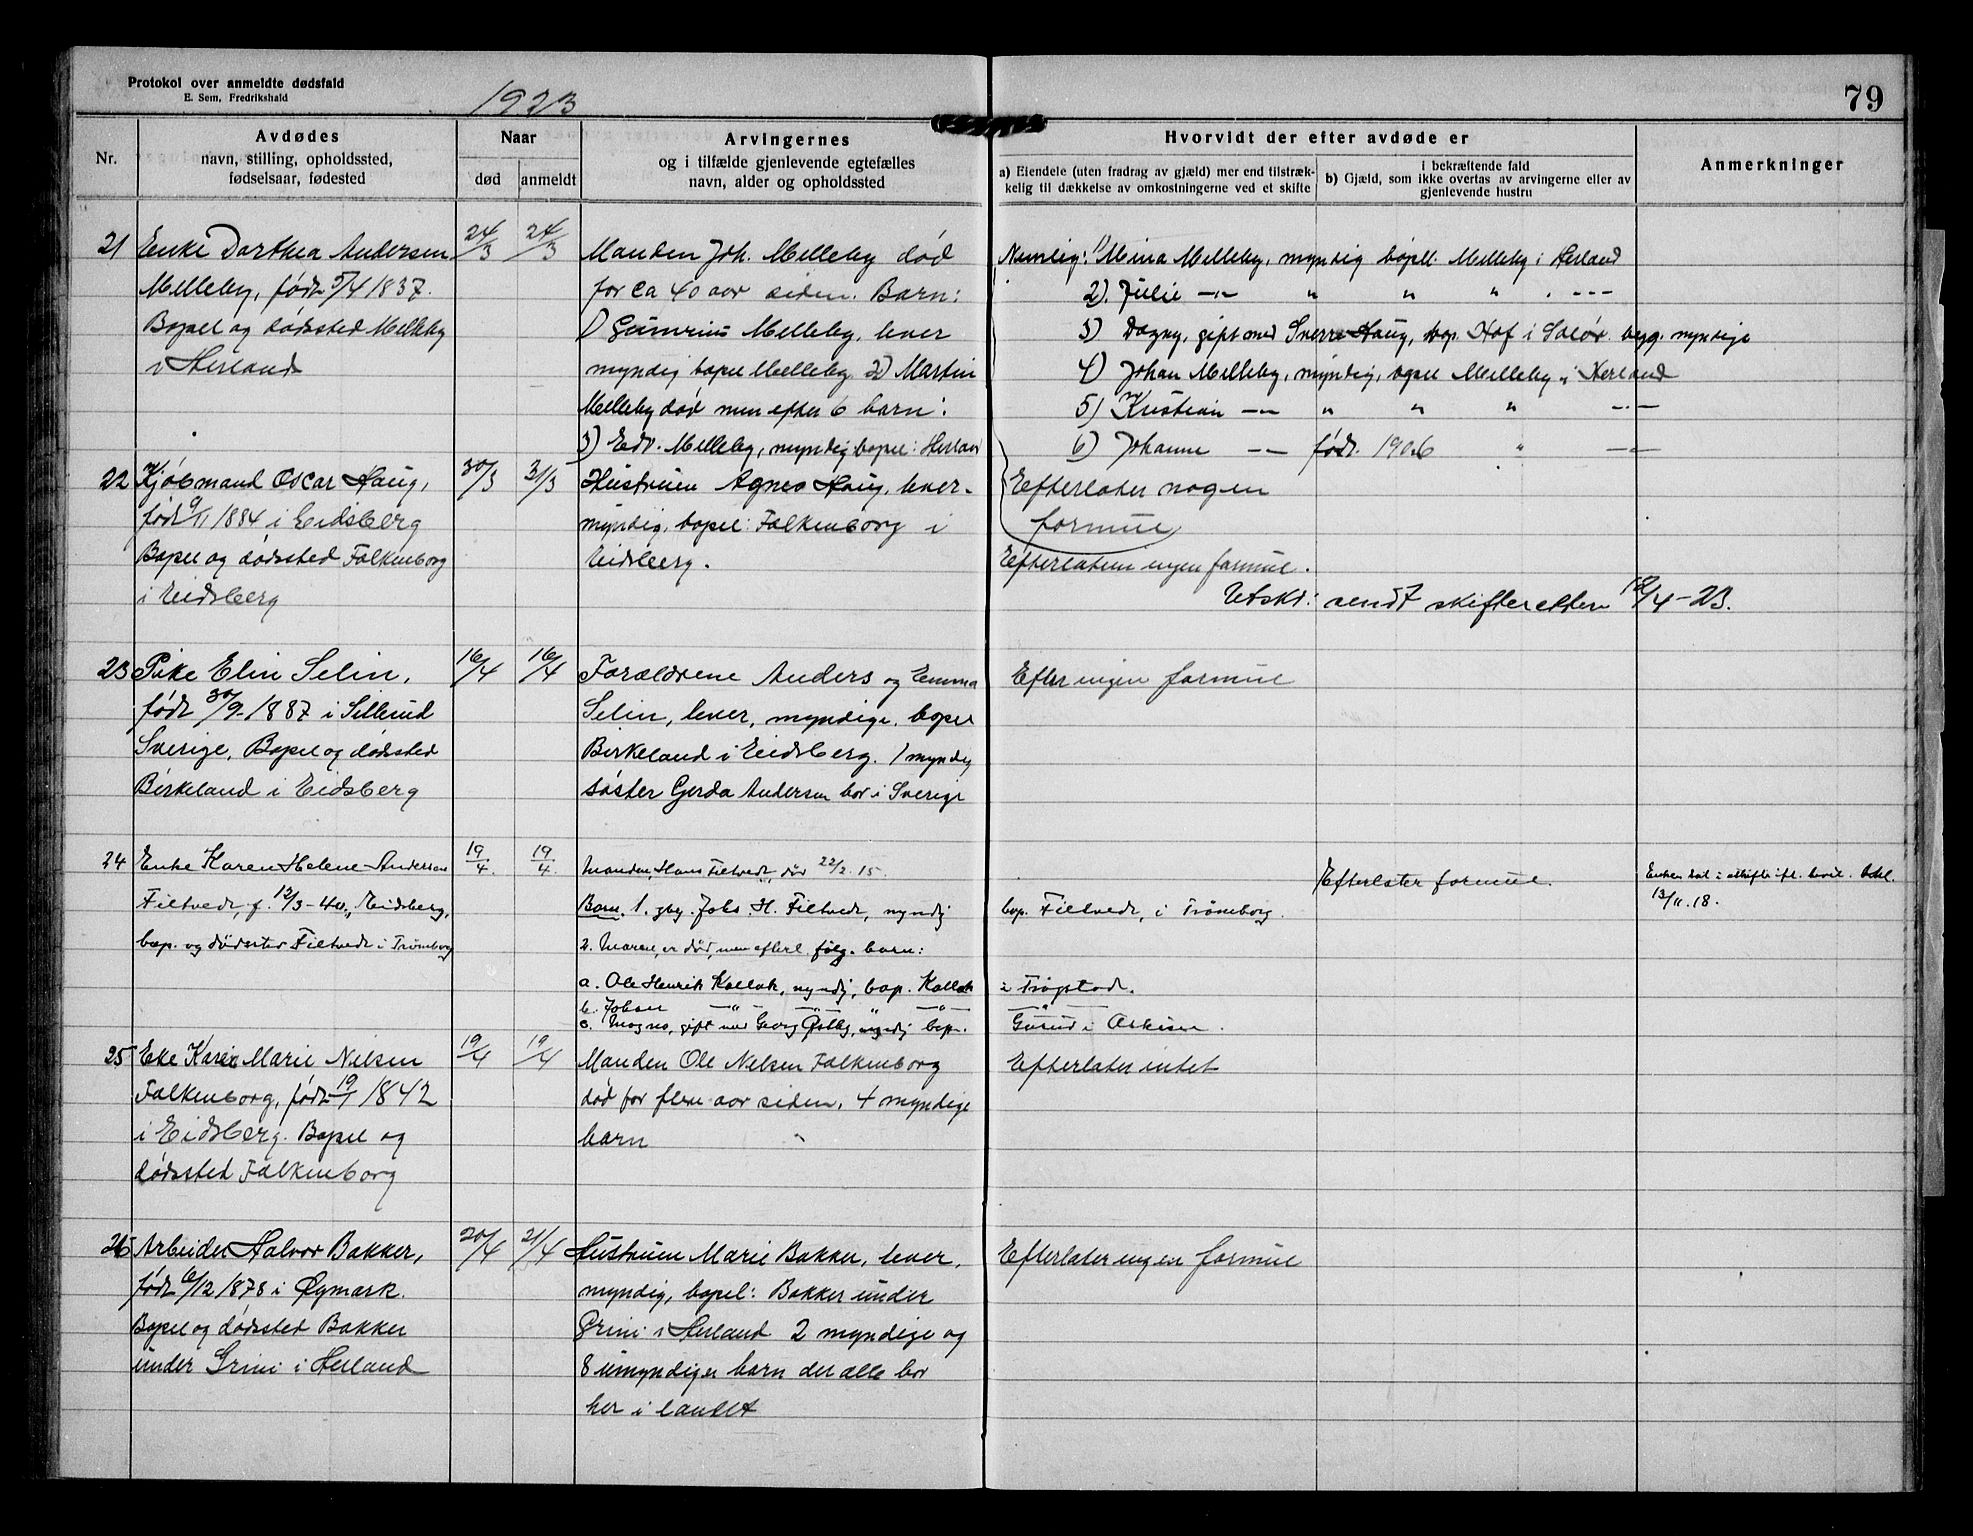 Protokol over anmeldte dødsfald
E. Sem, Fredrikshald
1923
79
Nr.
Avdødes
navn, stilling, opholdssted,
fødselsaar, fødested
Naar
død
anmeldt
Arvingernes
og i tilfælde gjenlevende egtefælles
navn, alder og opholdssted
Hvorvidt der efter avdøde er
a) Eiendele (uten fradrag av gjæld) mer end tilstræk-
kelig til dækkelse av omkostningerne ved et skifte
i bekræftende fald
b) Gjæld, som ikke overtas av arvingerne eller av
gjenlevende hustru
Anmerkninger
21 Enke Dorthea Andersen
Melleby, født 5/4 1837.
Bopel og dødssted Melleby
i Herland
24/3 24/3
Manden Joh. Melleby død
for ca 40 aar siden. Barn:
1) Melleby, lever
myndig bopel Melleby 2) Martin
Melleby død men efter 6 barn:
3) Edv. Melleby, myndig, bopel: Herland
Nemlig: 1) Mina Melleby, myndig bopel Melleby i Herland
2). Julie -"- " " " . ---
3) Dagny, gift med Sverre Haug, bop. Hof i Solør begg. myndige
4) Johan Melleby, myndig, bopel Melleby i Herland
5) Kristian -"- " " " -"-
6) Johanne -"- født 1906 " -"-
Efterlater nogen
formue
22 Kjøbmand Oscar Haug,
født 9/11 1884 i Eidsberg
Bopel og dødssted Falkenborg
i Eidsberg
30/3 31/3
Hustruen Agnes Haug, lever.
myndig, bopel: Falkenborg i
Eidsberg.
Efterlaten ingen formue.
Utskr: sendt skifteretten 18/4-23.
23 Pike Elin Selin,
født 30/9-1887 i Sillerud
Sverige, Bopel og dødssted
Birkeland i Eidsberg
16/4 16/4
Forældrene Anders og Emma
Selin, lever, myndige, bopel
Birkeland i Eidsberg. 1 myndig
søster Gerda Andersen bor i Sverige
Efter ingen formue
24 Enke Karen Helene Andersen
Filtvedt, f. 12/3-40, Eidsberg,
bop. og dødssted Filtvedt i Trømborg
19/4. 19/4.
Manden, Hans Filtvedt, død 22/2.15.
Barn. 1. gbr. Johs. H. Filtvedt, myndig
bop. Filtvedt, i Trømborg.
2. Maren, er død, men efterl. følg. barn:
a. Ole Henrik Kallak, myndig, bop. Kallak
i Trøgstad.
b. Johan -"- -"- " -"-
-"-
c. Magna, gift med Georg Østby, myndig bop.
i Askim.
Efterlater formue.
Enken sat i uskifte ifl. bevil.
13/11.18.
25 Eke Karen Marie Nilsen
Falkenborg, født 19/1 1842
i Eidsberg. Bopel og
dødssted Falkenborg
19/4 19/4
Manden Ole Nilsen Falkenborg
død for flere aar siden, 4 myndige
barn
Efterlater intet
26 Arbeider Halvor Bakker,
født 6/12 1878 i Øymark.
Bopel og dødssted Bakker
under Grini i Herland
20/4 21/4
Hustruen Marie Bakker, lever,
myndig, bopel: Bakker under
Grini i Herland 2 myndige og
8 umyndiger barn der alle bor
her i landet
Efterlater ingen formue